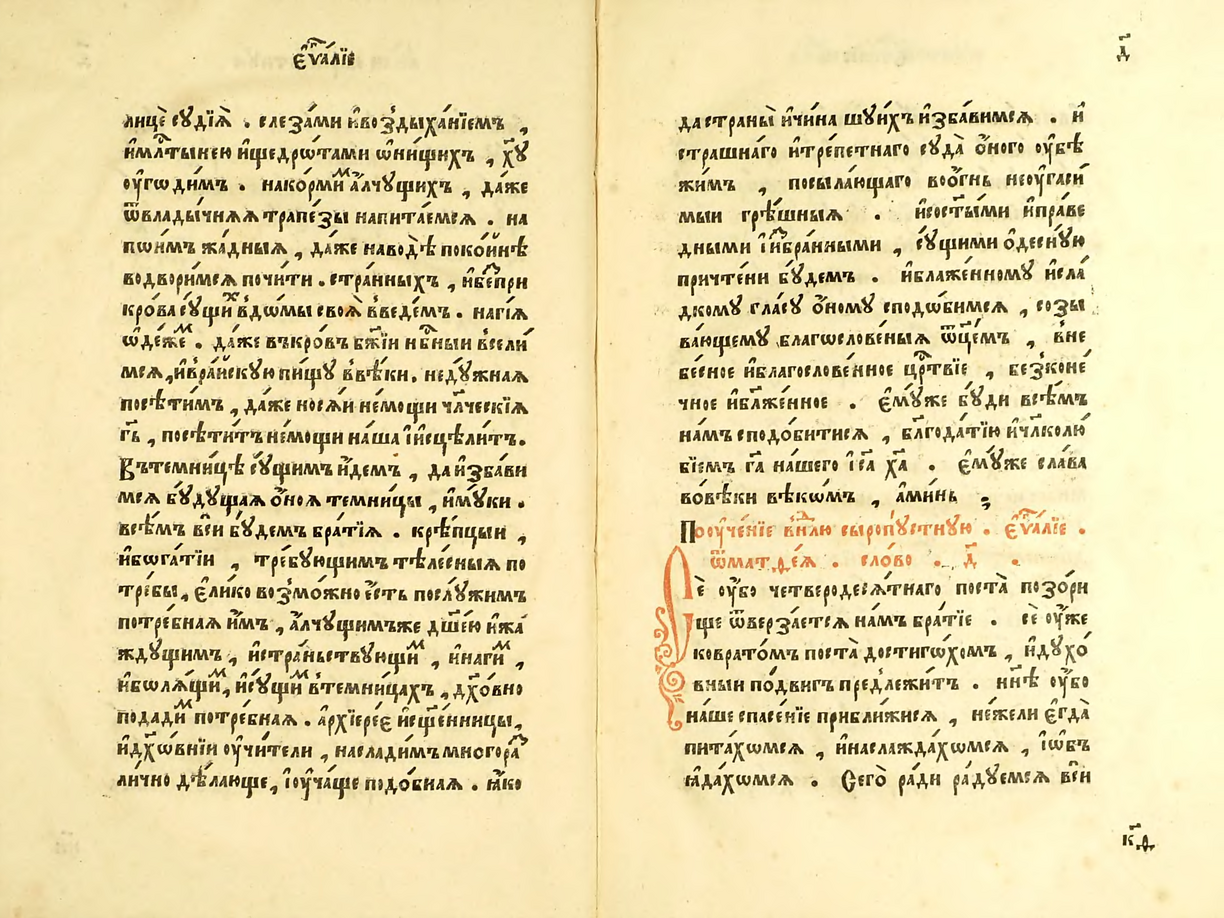 єѵⷢ҇алїе
лицѐ сꙋдїѧ̀ . слеза́ми и҆воз̾дыха́нїемъ ,
и҆млⷭ҇тынею и҆щедрѡ́тами ѡ҆ни́щихъ , хⷭ҇ꙋ
оу҆го ди́мъ . нако́рмиⷨ а҆́лчꙋщихъ , да́же
ѿвлады́чнѧѧ трапе́зы напита́емсѧ . на
пѡи́мъ жа́дныѧ , да́же наводѣ̀ поко́йнѣ
водвори́мсѧ почи́ти . стра́нныхъ , и҆беⷥпри
кро́ва сꙋ́щиⷯ в̾до́мы своѧ̀ в̾веде́мъ . наги́ѧ
ѡ҆де́жеⷨ . да́же въкро́въ бж҃їи нбⷭ҇ныи всели́
мсѧ , и҆в̾ра́йскꙋю пи́щꙋ в̾вѣ́ки . недꙋ́жнаѧ
посѣти́мъ , да́же носѧ́и не́мощи чл҃ческїѧ
гь҃ , посѣти́тъ не́мощи на́ша і҆и҆сцѣли́тъ .
Въ темни́цѣ сꙋ́щимъ и҆́демъ , да и҆зба́ви
мсѧ бꙋ́дꙋщаѧ о҆́ноѧ темни́цы , и҆мꙋ́ки .
всѣ́мъ вси бꙋ́демъ бра́тїѧ . крѣ́пцыи ,
и҆бѡга́тїи , тре́бꙋющимъ тѣле́сныѧ по
тре́бы , є҆ли́ко воз̾мо́жно є҆́сть послꙋ́жимъ
потре́бнаѧ и҆̀мъ , а҆́лчꙋщимъже дш҃е́ю и҆жа́
ждꙋщимъ , и҆стра́ньствꙋющиⷨ , и҆наги́ⷨ ,
и҆бѡлѧ́щиⷨ , и҆сꙋ́щиⷨ в̾темни́цахъ , дх҃о́вно
подади́ⷨ потре́бнаѧ . а҆рхїере́є и҆сщ҃е́нницы ,
и҆дх҃ѡ́внїи оу҆чи́тели , наслади́мъ многораⷥ
ли́чно дѣ́лающе , і҆оу҆ча́ще подо́бнаѧ . ꙗ҆́ко
д҃
да страны̀ и҆чи́на шꙋ́ихъ и҆зба́вимсѧ . и҆
стра́шнаго и҆тре́петнаго сꙋда̀ о҆́ного оу҆бѣ
жи́мъ , посыла́ющаго воо́гнь неоу҆гаси́
мыи грѣ́шныѧ . и҆состⷭ҇ы́ми и҆пра́ве
дными і҆и҆ⷥбра́нными , сꙋ́щими о҆деснꙋ́ю
причте́ни бꙋ́демъ . и҆блаже́нномꙋ и҆сла́
дкомꙋ гла́сꙋ о҆́номꙋ сподо́бимсѧ , созы
ва́ющемꙋ благослове́ныѧ ѿц҃е́мъ , в̾не
бе́сное и҆благослове́нное црⷭ҇твїе , без̾коне́
чное и҆бл҃же́нное . є҆мꙋ́же бꙋ́ди всѣ́мъ
на́мъ сподо́битисѧ , бл҃года́тїю и҆чл҃колю́
бїемъ га҃ на́шего і҆са҃ ха҃ . є҆мꙋ́же сла́ва
во́вѣки вѣко́мъ , а҆ми́нь ;
Поуче́нїе внⷣлю сыропꙋ́стнꙋю . єѵⷢ҇алїе .
ѿматѳе́ѧ . сло́во . д҃ .
Сѐ оу҆́бо четверодесѧ́тнаго поста̀ позо́ри
ще ѿверза́етсѧ на́мъ бра́тїе . сѐ оу҆́же
ковратѡ́мъ поста̀ достиго́хомъ , и҆дꙋхо́
вныи по́двигъ предлежи́тъ . ннⷩ҇ѣ оу҆́бо
на́ше спасе́нїе прибли́жисѧ , не́жели є҆гда̀
пита́хомсѧ , и҆наслажда́хомсѧ , і҆ѡ҆бъ
ꙗ҆да́хомсѧ . Сего̀ ра́ди ра́дꙋемсѧ вси
к҃д